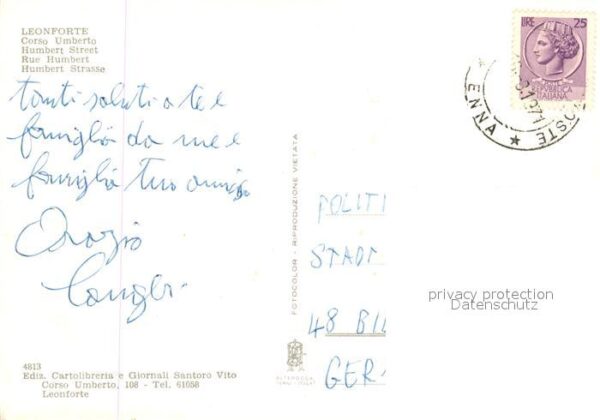 LEONFORTE
Corso Umberto
Humbert Street
Rue Humbert
Humbert Strasse
LIRE 25
REPVBBLICA
ITALIANA
ENNA * POSTE
tanti saluti a te e
famiglia da me e
famiglia tuo amico
Orazio
FOTOCOLOR - RIPRODUZIONE VIETATA
POLITI
STADT
48 BI
GER
privacy protection
Datenschutz
4813
Ediz. Cartolibreria e Giornali Santoro Vito
Corso Umberto, 108 - Tel. 61058
Leonforte